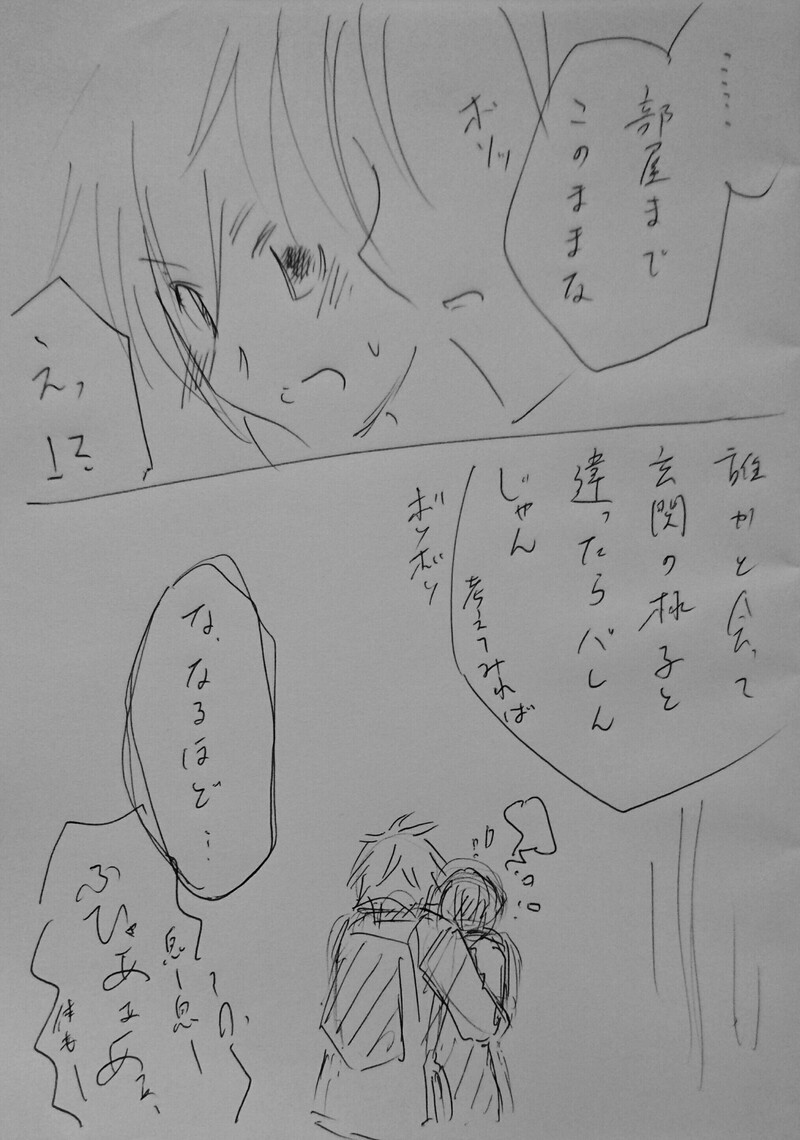 ……
部屋まで
このままな
ボソッ
えっ
!?
誰かと会って
玄関の様子と
違ったらバレん
じゃん
考えてみれば
ボソボソ
な、なるほど…
ってか
息ー息ー
ふひゃあまあぁ、
体もー